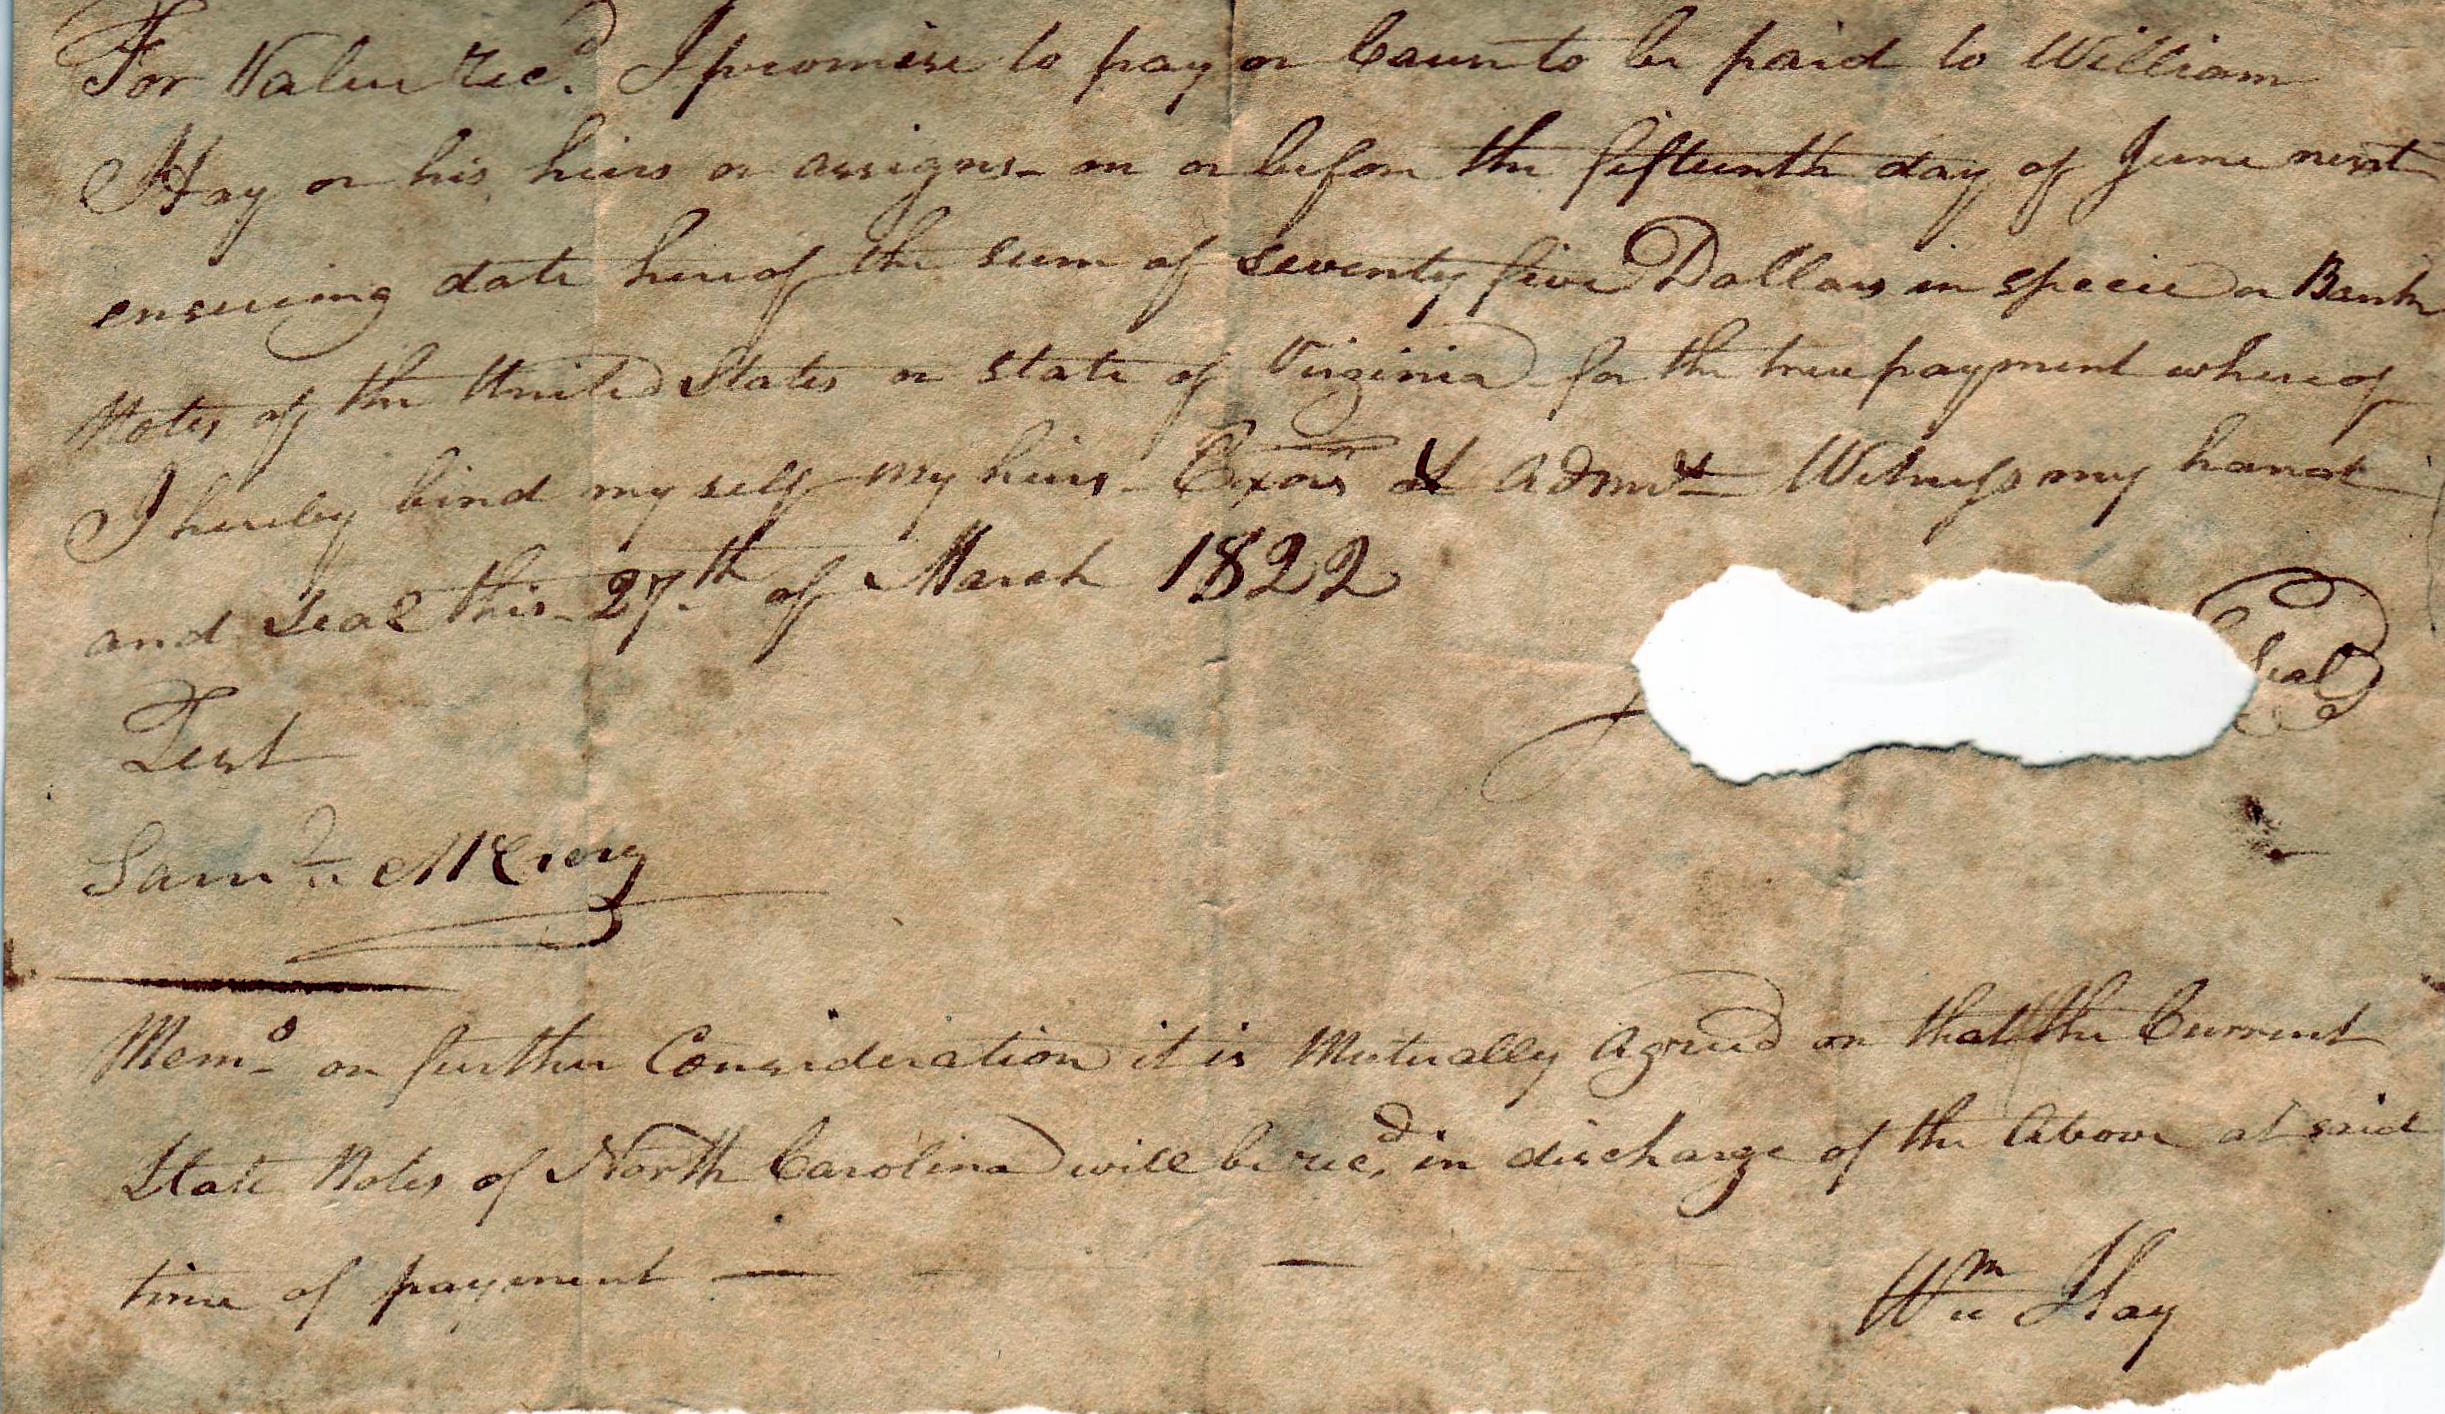 For Value Rec.d I promise to pay or Cause to be paid to William
Hay or his heirs or assigns - on or before the fifteenth day of June next
ensueing date hereof the sum of seventy five Dollars in specie or Bank
Notes of the United States or state of Virginia for the true payment whereof
I hereby bind my self my heirs - Exors & Admrs Witness my hand
and Seal this - 27.th of March 1822
Seal
Test
Saml McCrory
Memo - on further Consideration it is Mutually Agreed on that the Current
State Notes of North Carolina will be rec.d in discharge of the Above at said
time of payment —
Wm Hay